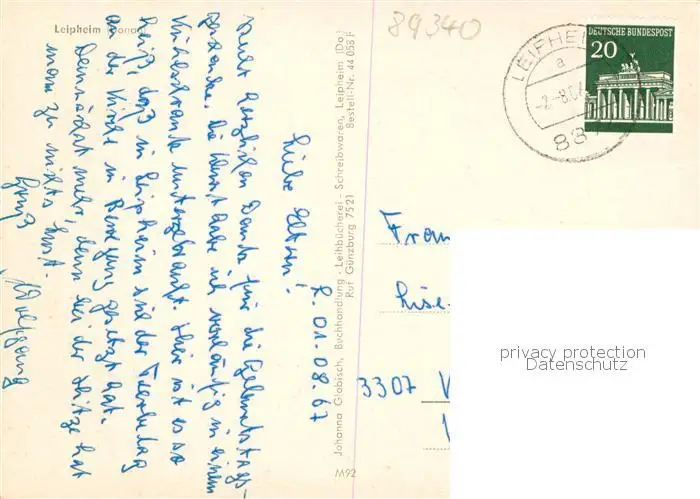 Leipheim (Donau)
89340
DEUTSCHE BUNDESPOST
20
LEIPHEIM
a
-2.-8.67
887
L. 01.08.67
Liebe Eltern!
Recht herzlichen Dank für die Geburtstags-
geschenke. Die Wurst habe ich vorläufig in einem
Kühlschrank untergebracht. Hier ist es so
heiß, daß in Leipheim sich der
an der Kirche in Bewegung gesetzt hat.
Demnächst mehr, denn bei der Hitze hat
man zu nichts Lust.
Gruß
Wolfgang
Johanna Globisch, Buchhandlung - Leihbücherei - Schreibwaren, Leipheim (Do.)
Ruf Günzburg 7521
Bestell-Nr. 44 058 F
M92
Frau
Lise
3307
privacy protection
Datenschutz